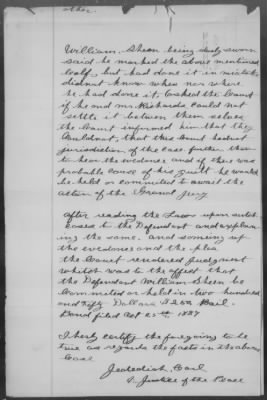 other.
William Sheen being duly sworn
said he marked the above mentioned
Calf, but had done it in mistake
did not know when nor where
he had done it, asked the Court
if he and Mr Richards could not
settle it between them selves
the Court informed him that they
Could not, that this Court had no
jurisdiction of the case further than
to hear the evidence and if there was
probable cause of his guilt he would
be held or committed to await the
action of the Grand Jury
after reading the Law upon such
cases to the Defendant and explain
ing the same. and soming up
the evidence and the plea
the Court rendered Judgment
whitch was to the effect that
the Defendant William Sheen be
Committed or held in two hundred
and Fifty Dollars $250 Bail.
Bond filed Oct 25th 1887
I herby certify the foregoing to be
true as regards the facts in the above
Case
Justice of the Peace